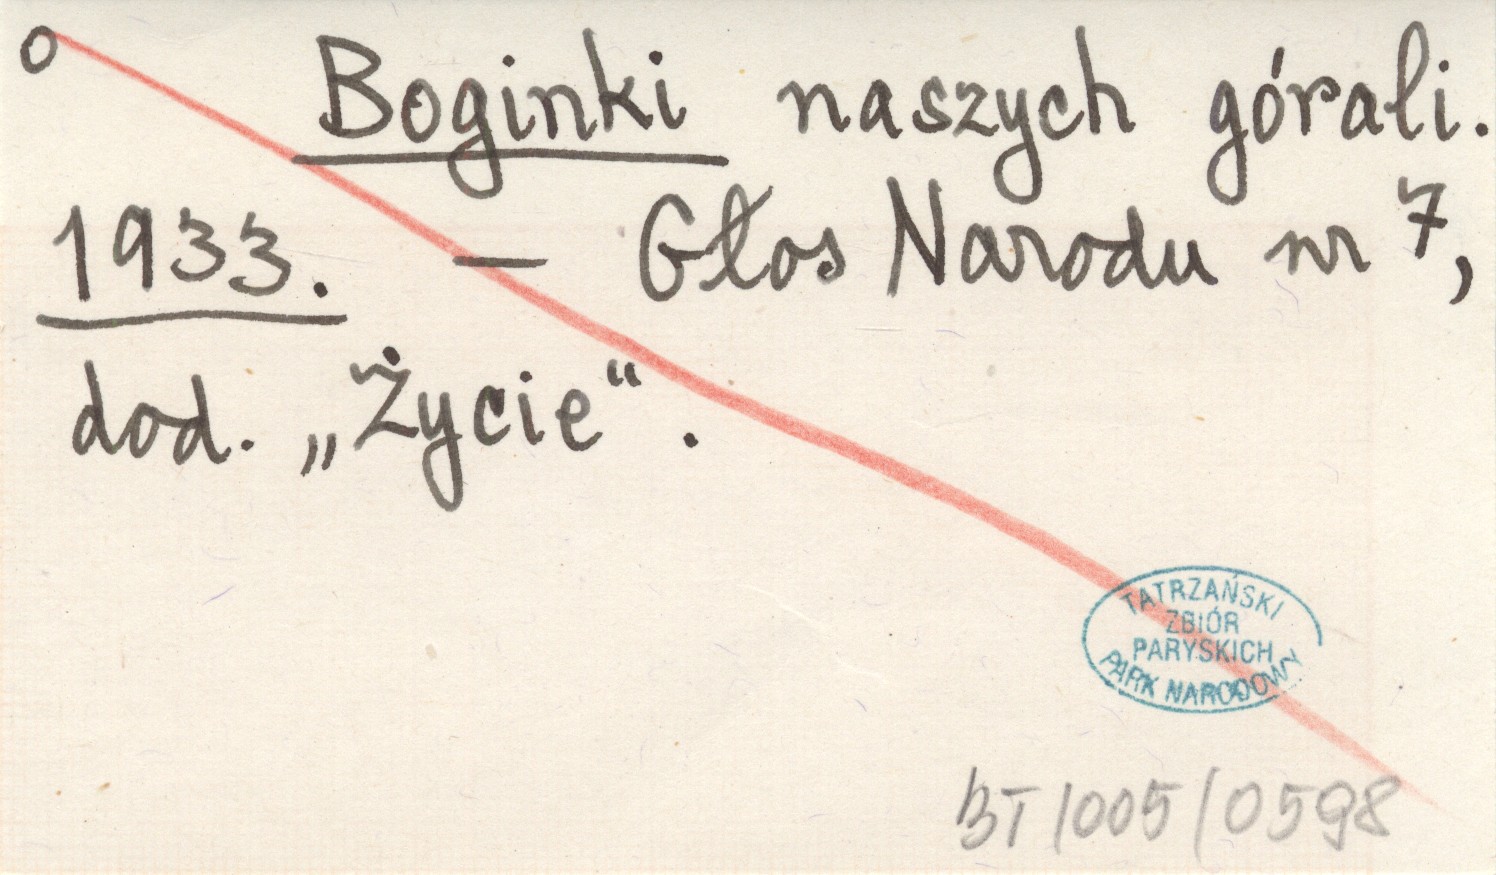 o Boginki naszych górali.
1933. — Głos Narodu nr 7,
dod. „Życie“.
TATRZAŃSKI
ZBIÓR
PARYSKICH
PARK NARODOWY
BT/005/0598